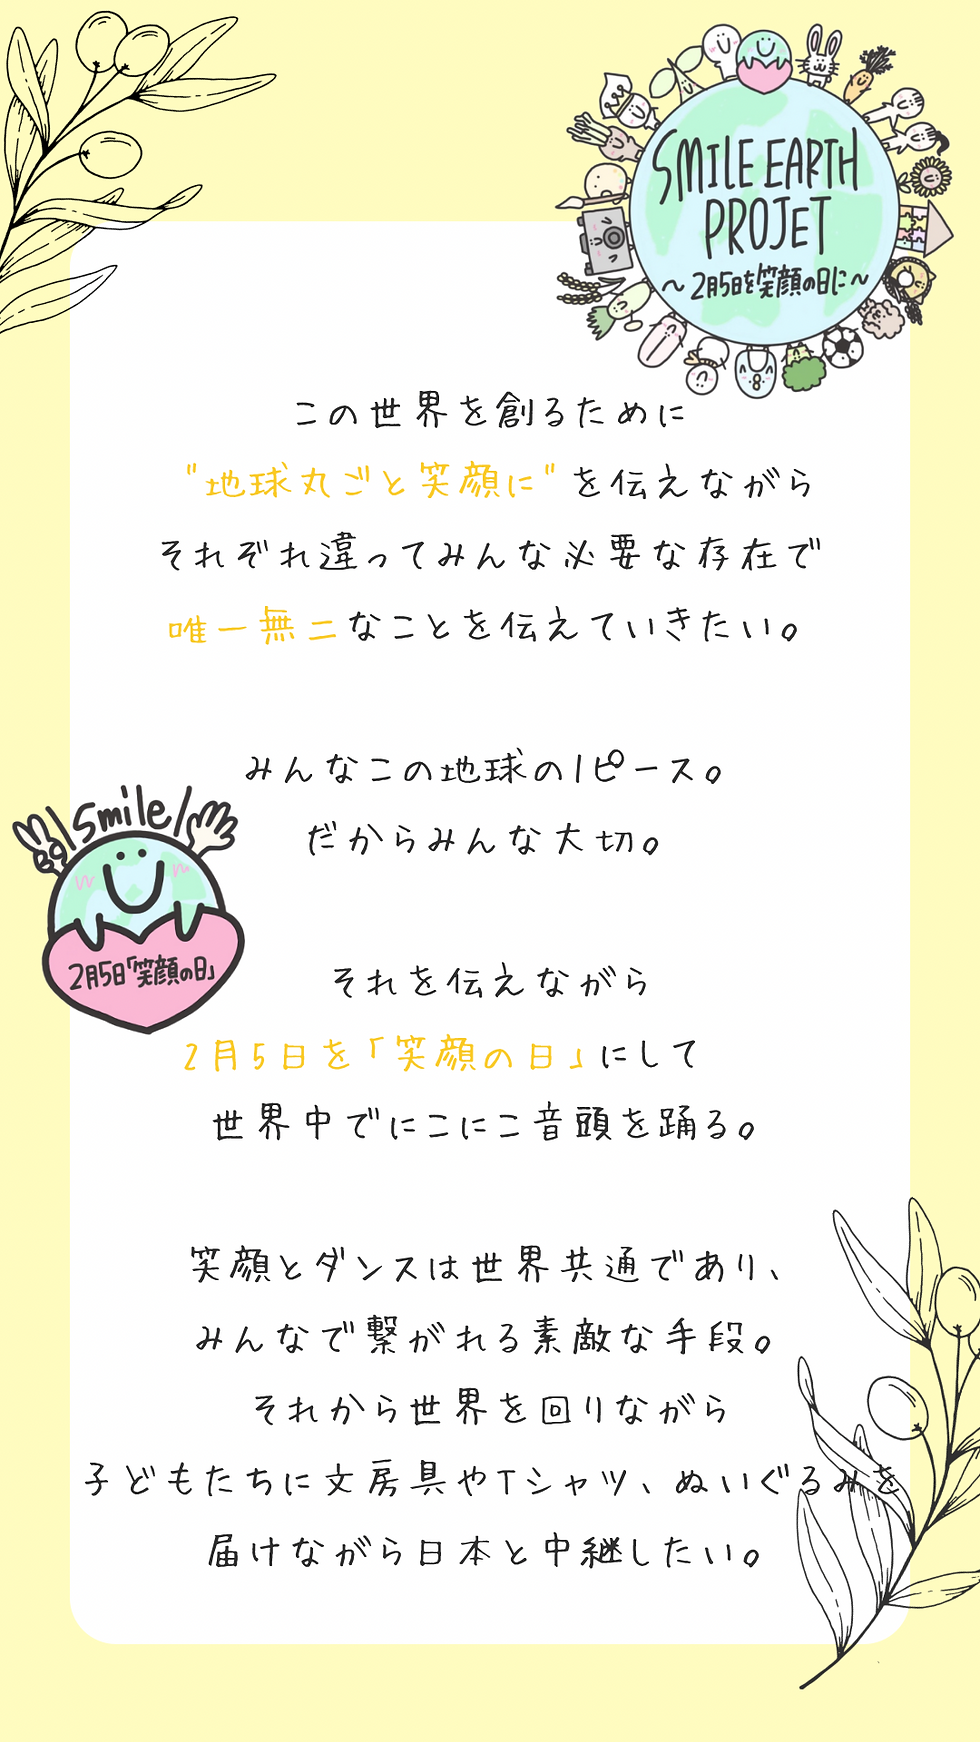 SMILE EARTH
PROJET
～2月5日を笑顔の日に～
この世界を創るために
"地球丸ごと笑顔に"を伝えながら
それぞれ違ってみんな必要な存在で
唯一無二なことを伝えていきたい。
みんなこの地球の1ピース。
だからみんな大切。
Smile
2月5日「笑顔の日」
それを伝えながら
2月5日を「笑顔の日」にして
世界中でにこにこ音頭を踊る。
笑顔とダンスは世界共通であり、
みんなで繋がれる素敵な手段。
それから世界を回りながら
子どもたちに文房具やTシャツ、ぬいぐるみを
届けながら日本と中継したい。